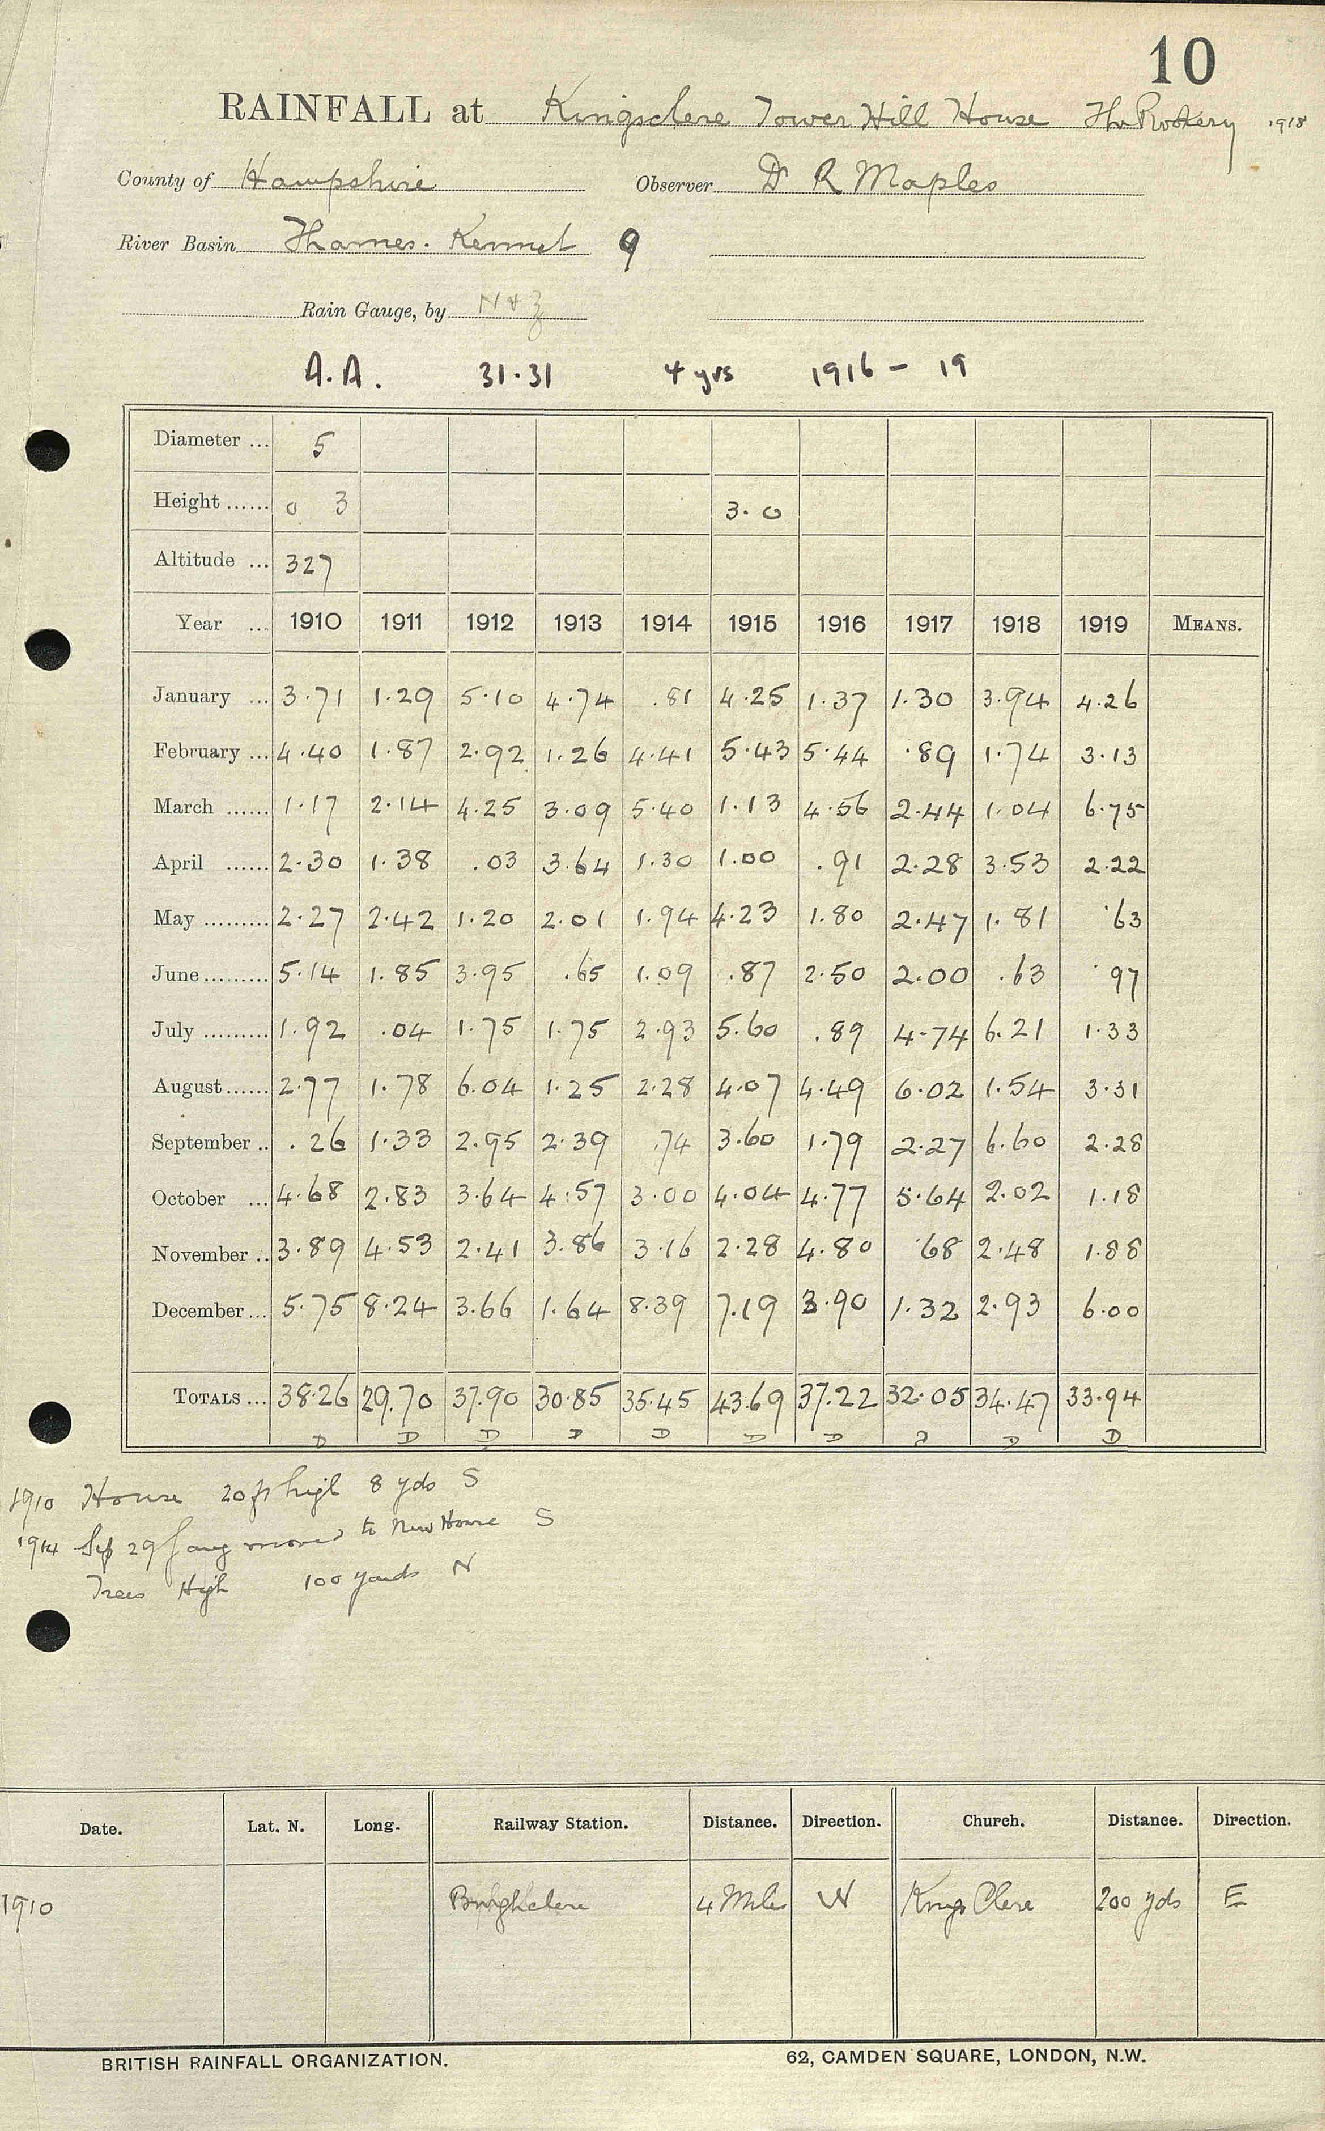 10
RAINFALL at Kingsclere Tower Hill House The Rookery 1918
County of Hampshire Observer Dr R Maples
River Basin Thames. Kennet 9
Rain Gauge, by N & Z
A.A. 31.31 4 yrs 1916 - 19
Diameter ... 5
Height ...... 0 3 3.0
Altitude ... 327
Year ... 1910 1911 1912 1913 1914 1915 1916 1917 1918 1919 MEANS.
January ... 3.71 1.29 5.10 4.74 .81 4.25 1.37 1.30 3.94 4.26
February ... 4.40 1.87 2.92 1.26 4.41 5.43 5.44 .89 1.74 3.13
March ...... 1.17 2.14 4.25 3.09 5.40 1.13 4.56 2.44 1.04 6.75
April ...... 2.30 1.38 .03 3.64 1.30 1.00 .91 2.28 3.53 2.22
May ......... 2.27 2.42 1.20 2.01 1.94 4.23 1.80 2.47 1.81 .63
June ......... 5.14 1.85 3.95 .65 1.09 .87 2.50 2.00 .63 .97
July ......... 1.92 .04 1.75 1.75 2.93 5.60 .89 4.74 6.21 1.33
August ...... 2.77 1.78 6.04 1.25 2.28 4.07 4.49 6.02 1.54 3.31
September .. .26 1.33 2.95 2.39 .74 3.60 1.79 2.27 6.60 2.28
October ... 4.68 2.83 3.64 4.57 3.00 4.04 4.77 5.64 2.02 1.18
November .. 3.89 4.53 2.41 3.86 3.16 2.28 4.80 .68 2.48 1.88
December ... 5.75 8.24 3.66 1.64 8.39 7.19 3.90 1.32 2.93 6.00
TOTALS ... 38.26 29.70 37.90 30.85 35.45 43.69 37.22 32.05 34.47 33.94
D D D D D D D D D D
1910 House 20 ft high 8 yds S
1914 Sep 29 moved to New House S
Trees High 100 yards N
Date. Lat. N. Long. Railway Station. Distance. Direction. Church. Distance. Direction.
1910 4 Miles Kings Clere 200 yds E
BRITISH RAINFALL ORGANIZATION. 62, CAMDEN SQUARE, LONDON, N.W.